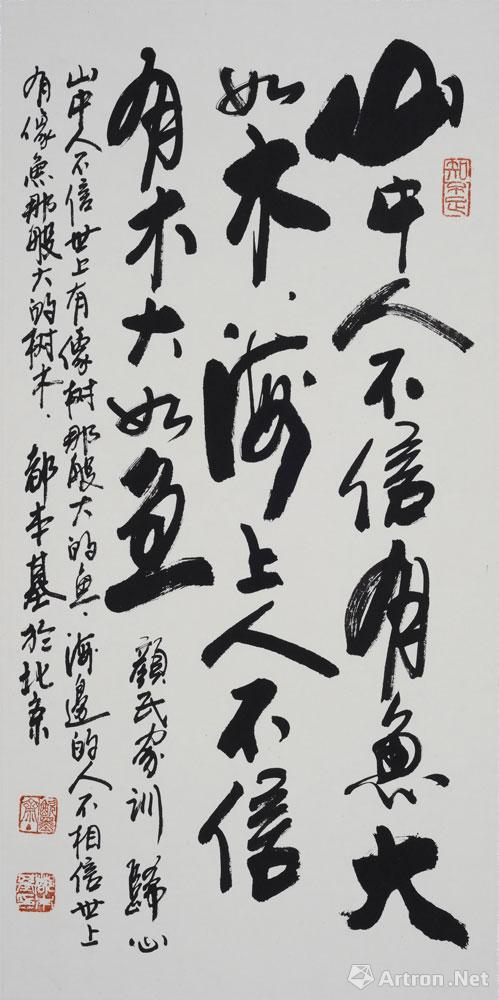 山中人不信有魚大
如木海上人不信
有木大如魚
顏氏家訓 歸心
山中人不信世上有像树那般大的魚海邊的人不相信世上
有像魚那般大的树木都本基於北京
知不足
Artron.Net